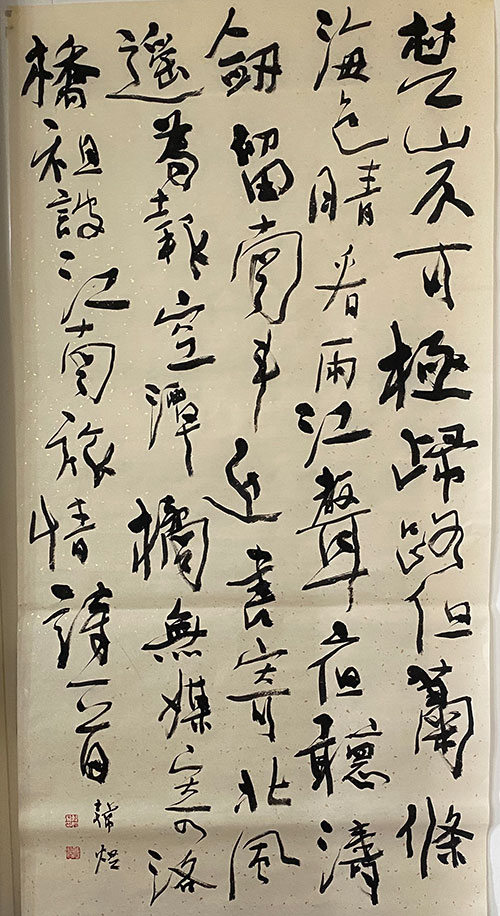 楚山不可極歸路但蕭條
海色晴看雨江聲夜聽濤
劍留南斗近書寄北風
遙為報空潭橘無媒寄洛
橋祖詠江南旅情詩一首
韓